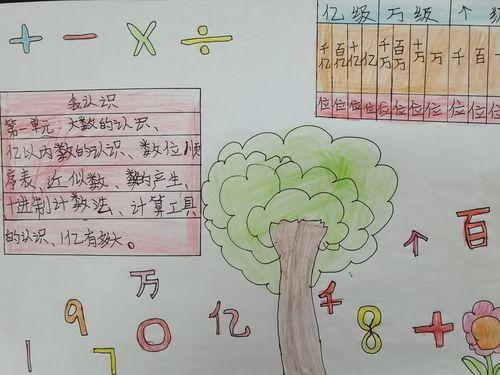 + - × ÷
亿级 万级 个级
千亿 百亿 十亿 亿 千万 百万 十万 万 千 百
位 位 位 位 位 位 位 位 位 位 位
我认识
第一单元:大数的认识、
亿以内数的认识、数位顺
序表、近似数、数的产生、
十进制计数法、计算工具
的认识、1亿有多大。
百
个
万
千
亿
9
0
8
+
1
7